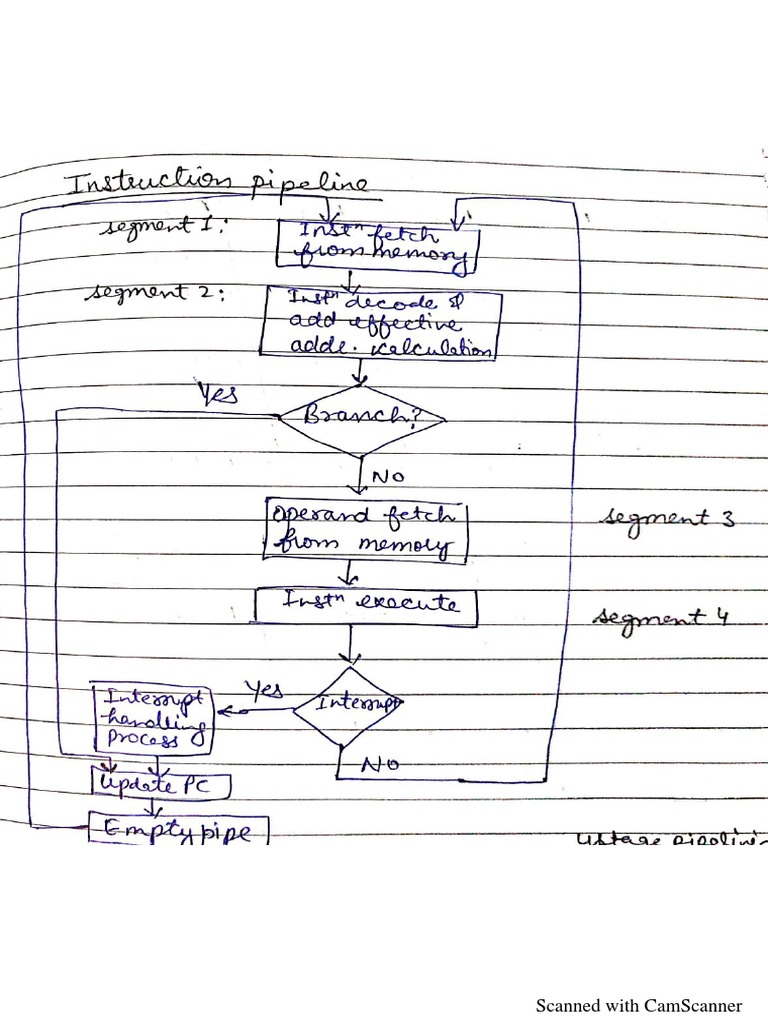 Instruction pipeline
segment 1:
Instⁿ fetch
from memory
segment 2:
Instⁿ decode &
add effective
adde. calculation
Yes
Branch?
NO
operand fetch
from memory
segment 3
Instⁿ execute
segment 4
Interrupt
handling
process
Yes
Interrupt
NO
Update PC
Empty pipe
Scanned with CamScanner